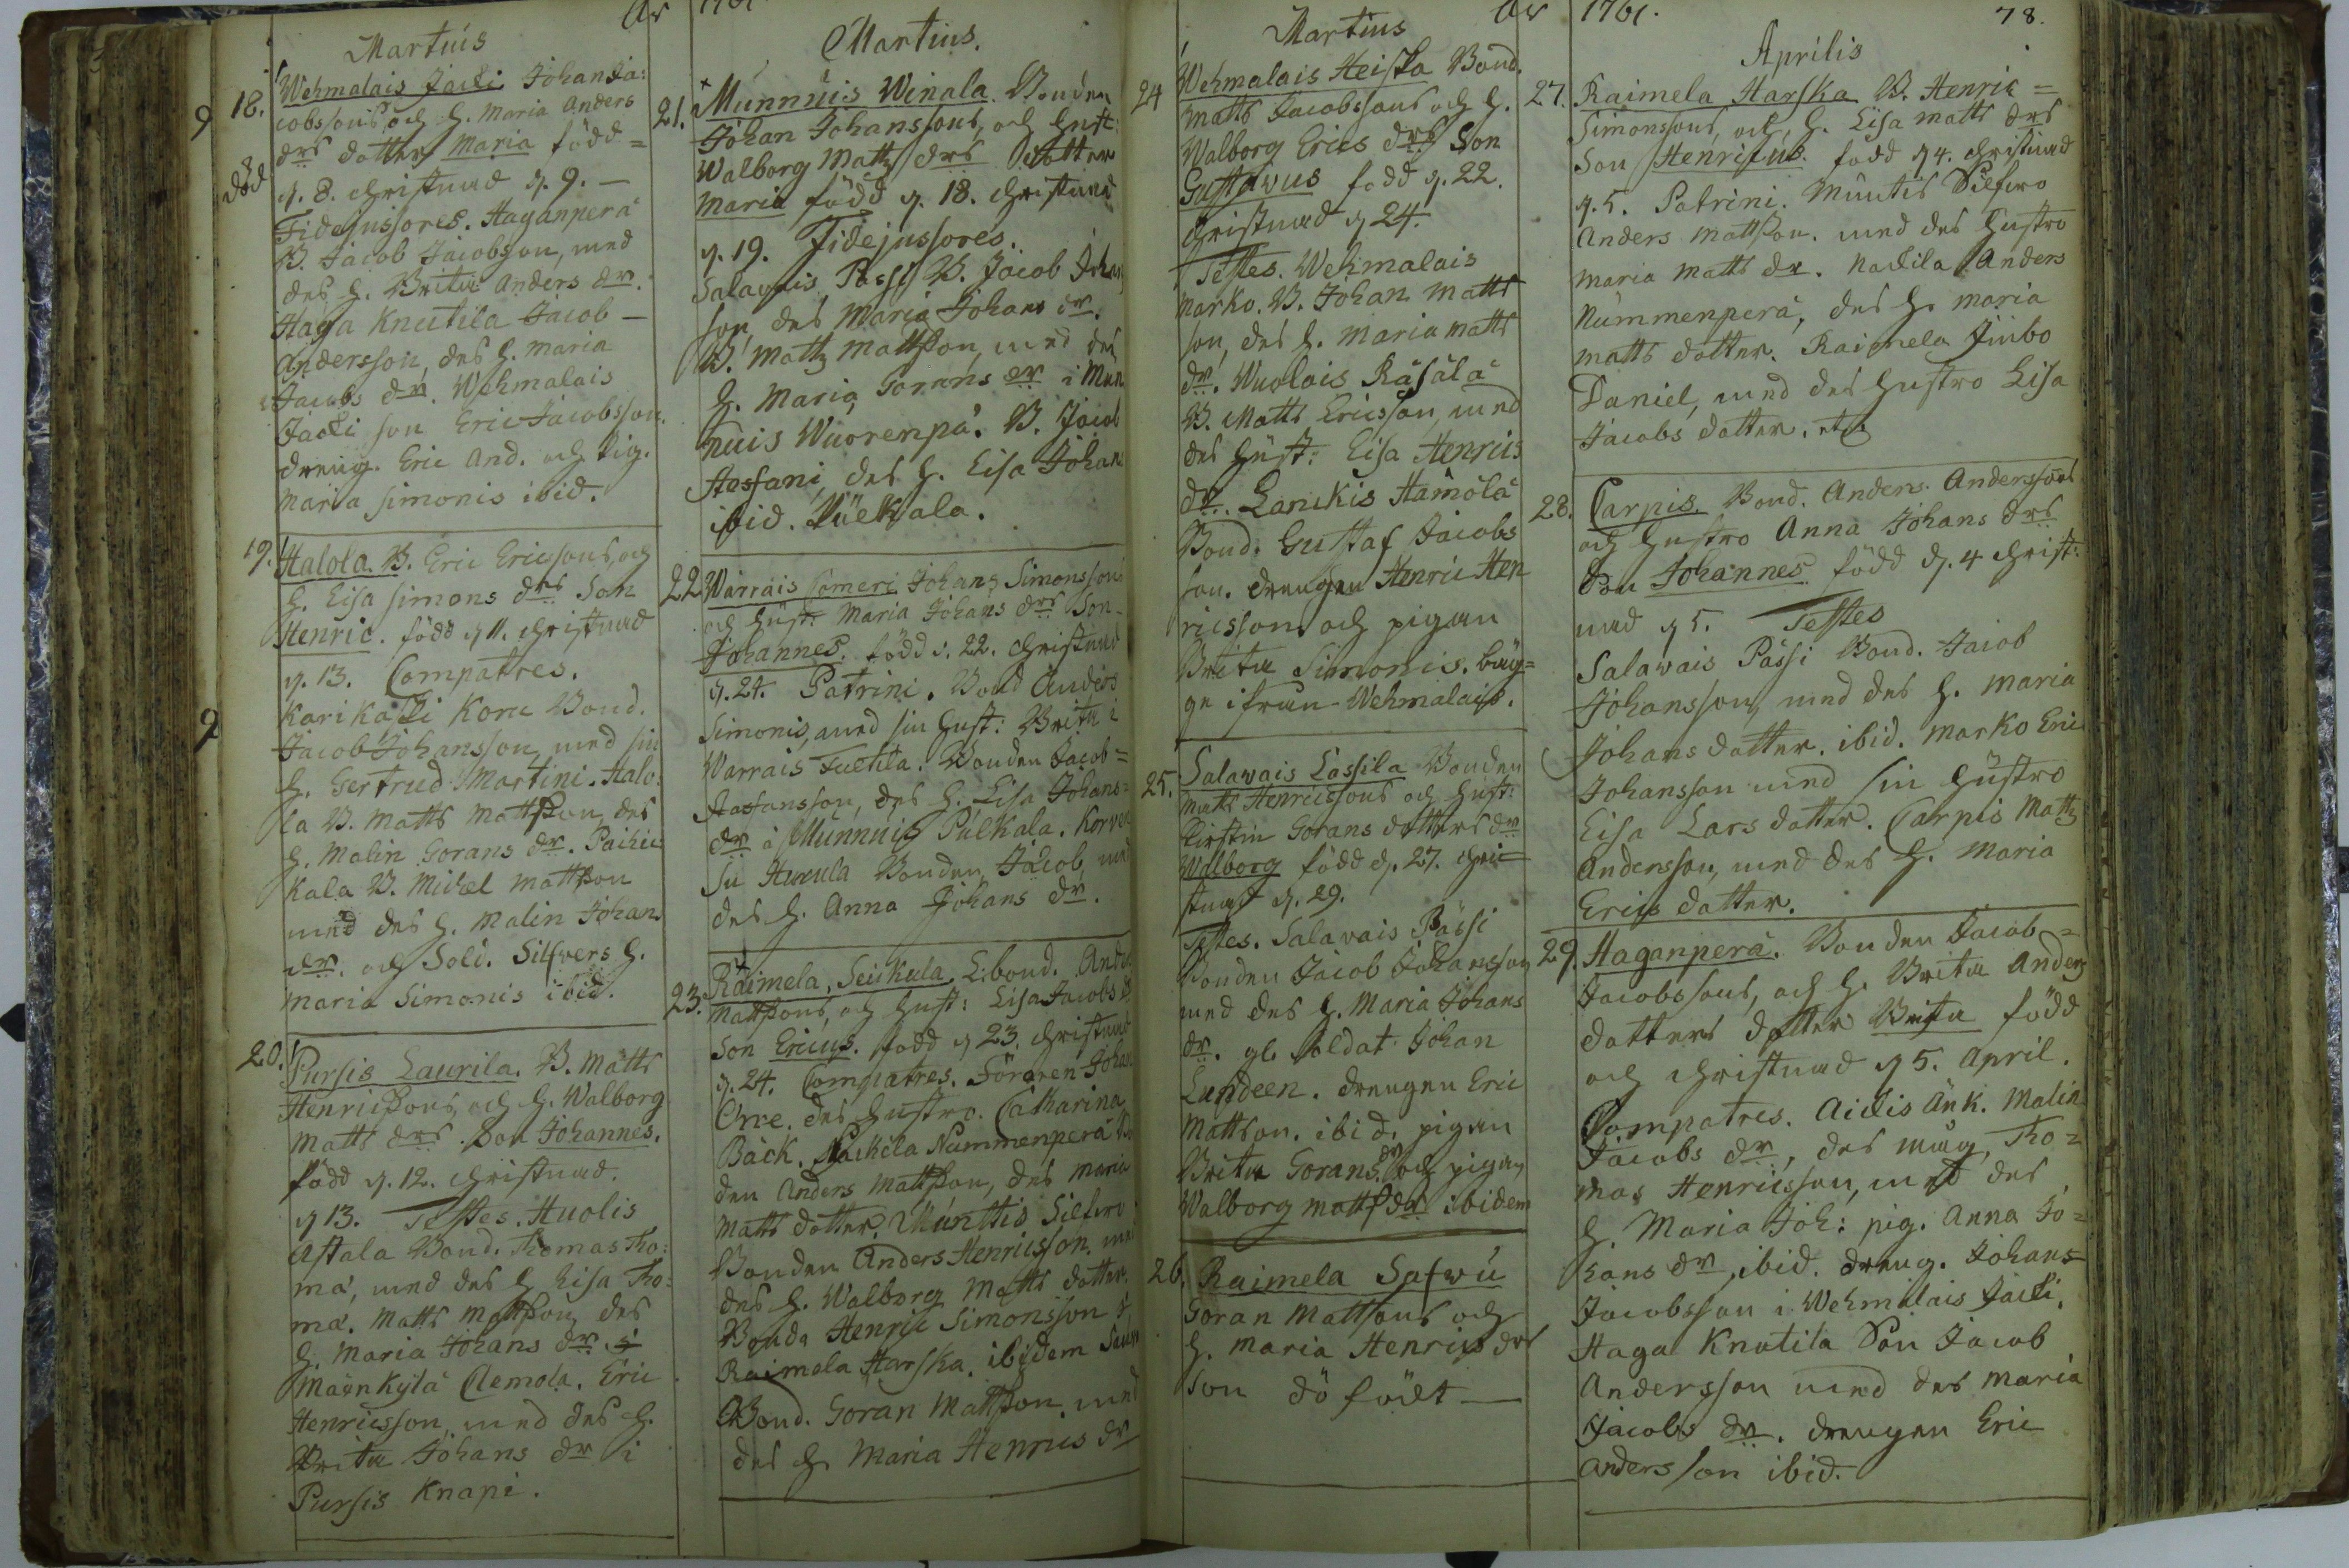 År 1761.
Martius
18. Wehmalais Jacki Johan Ja:
cobssons, och h. Maria Anders
drs dotter Maria född=
död
d. 8. christnad d. 9. —
Fidejussores. Haganperä
B. Jacob Jacobsson, med
des h. Brita Anders dr.
Haga Knutila Jacob —
Andersson, des h. Maria
Jacobs dr. Wehmalais
Jacki son Eric Jacobsson.
dreng. Eric And. och pig.
Maria Simonis ibid.
19. Halola. B. Eric Ericssons, och
h. Lisa Simons drs Son
Henric. född d 11. christnad
d. 13. Compatres.
Karikaski Koru Bond.
Jacob Johansson, med sin
h. Gertrud Martini. Halo:
la B. Matts Mattsson, des
h. Malin Görans dr. Paihic
kala B. Michel Mattsson
med des h. Malin Johans
dr. och Sold. Silfvers h.
Maria Simonis ibid.
20. Pursis Laurila. B. Matts
Henricssons, och h. Walborg
Matts drs. Son Johannes.
född d. 12. christnad.
d 13. Testes. Huolis
Astala Bond. Thomas Tho:
mæ, med des h Lisa Tho:
mæ. Matts Mattsson, des
h. Maria Johans dr
Mäenkylä Clemola. Eric
Henricsson, med des h.
Brita Johans dr i
Pursis Knapi.
Martius.
21. Munnuis Winala. Bonden
Johan Johanssons, och hust:
Walborg Matts drs dotter
Maria född d. 18. christnad
d. 19. Fidejussores.
Salawais Passi B. Jacob Johans
son, des Maria Johans dr.
B. Matts Mattsson, med des
h. Maria Görans dr i Mun
nuis Wuorenpä. B. Jacob
Staffani, des h. Lisa Johans
ibid. Pulkala.
22. Warrais Someri Johans Simonssons
och hust: Maria Johans drs Son
Johannes. född d. 22. christnad
d. 24. Patrini. Bond Anders
Simonis, med sin hust: Brita i
Warrais Tuckila. Bonden Jacob=
Staffansson, des h. Lisa Johans=
dr å Munnuis Pulkala. Korwen
su Huxula Bonden Jacob, med
des h. Anna Johans dr.
23. Raimela, Seukula L:bond. Anders
Mattssons, och hust: Lisa Jacobs d
Son Ericus. född d 23. christnad
d. 24. Compatres. Föraren Johan
Chre. des hustro. Catharina
Bäck. Nackila Nummenperä Bon
den Anders Mattsson, des Maria
Matts dotter. Munttis Silfwo
Bonden Anders Henricsson, med
des h. Walborg Matts dotter.
Bonden Henric Simonsson
Raimela Harska. ibidem
Bond. Göran Mattsson, med
des h. Maria Henrics dr
År 1761. 78.
Martius
24 Wehmalais Heiska Bond.
Matts Jacobssons och h.
Walborg Erics drs Son
Gustavus född d. 22.
christnad d 24.
Testes. Wehmalais
Marko. B. Johan Matts
son, des h. Maria Matts
dr. Wuolais Räsälä
B. Matts Ericsson, med
des hust: Lisa Henrics
dr. Lanckis Hamölä
Bond. Gustaf Jacobs
son. drengen Henric Hen
ricsson och pigan
Brita Simonis. bäg=
ge ifrån Wehmalais.
25. Salawais Lassila Bonden
Matts Henricssons och hust:
Kirstin Görans dotters dr
Walborg född d. 27. chri=
stnad d. 29.
Testes. Salavais Passi
Bonden Jacob Johansson
med des h. Maria Johans
dr. gl. soldat Johan
Lundeen. drengen Eric
Mattson. ibid. pigan
Brita Görans dr och pigan
Walborg Matts dr ibidem
26. Raimela Safwu
Göran Mattsons och
h. Maria Henrics drs
son dö född —
Aprilis
27. Raimela Harska B. Henric=
Simonssons, och h. Lisa Matts drs
Son Henricus. född d 4. christnad
d. 5. Patrini. Muntis Silfwo
Anders Mattsson. med des hustro
Maria Matts dr. Nackila Anders
Nummenperä, des h. Maria
Matts dotter. Raimela Junbo
Daniel, med des hustro Lisa
Jacobs dotter. etc
28. Carpis. Bond. Anders Anderssons
och hustro Anna Johans drs
Son Johannes född d. 4 christ:
nad d 5. Testes
Salawais Passi Bond. Jacob
Johansson, med des h. Maria
Johans dotter. ibid. Marko Eric
Johansson med sin hustro
Lisa Lars dotter. Carpis Matts
Andersson, med des h. Maria
Erics dotter.
29. Haganperä. Bonden Jacob=
Jacobssons, och h. Brita Anders
dotters dotter Brita född
och christnad d 5. April.
Compatres. Aickis Änk. Malin
Jacobs dr, des måg, Tho=
mas Henricsson, med des
h. Maria Joh: pig. Anna Jo=
hans dr, ibid. dreng. Johans=
Jacobsson i Wehmalais Jacki.
Haga Knutila Son Jacob
Andersson med des Maria
Jacobs dr. drengen Eric
Andersson ibid.